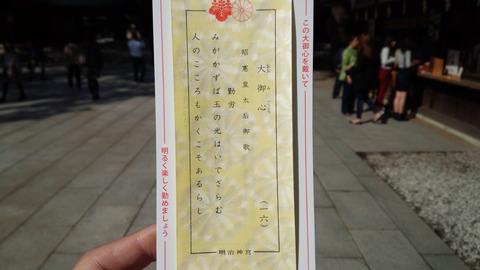 この大御心を戴いて
大御心
おおみごころ
(一六)
昭憲皇太后御歌
勤労
みがかずば玉の光はいでざらむ
人のこころもかくこそあるらし
明治神宮
明るく楽しく勤めましょう